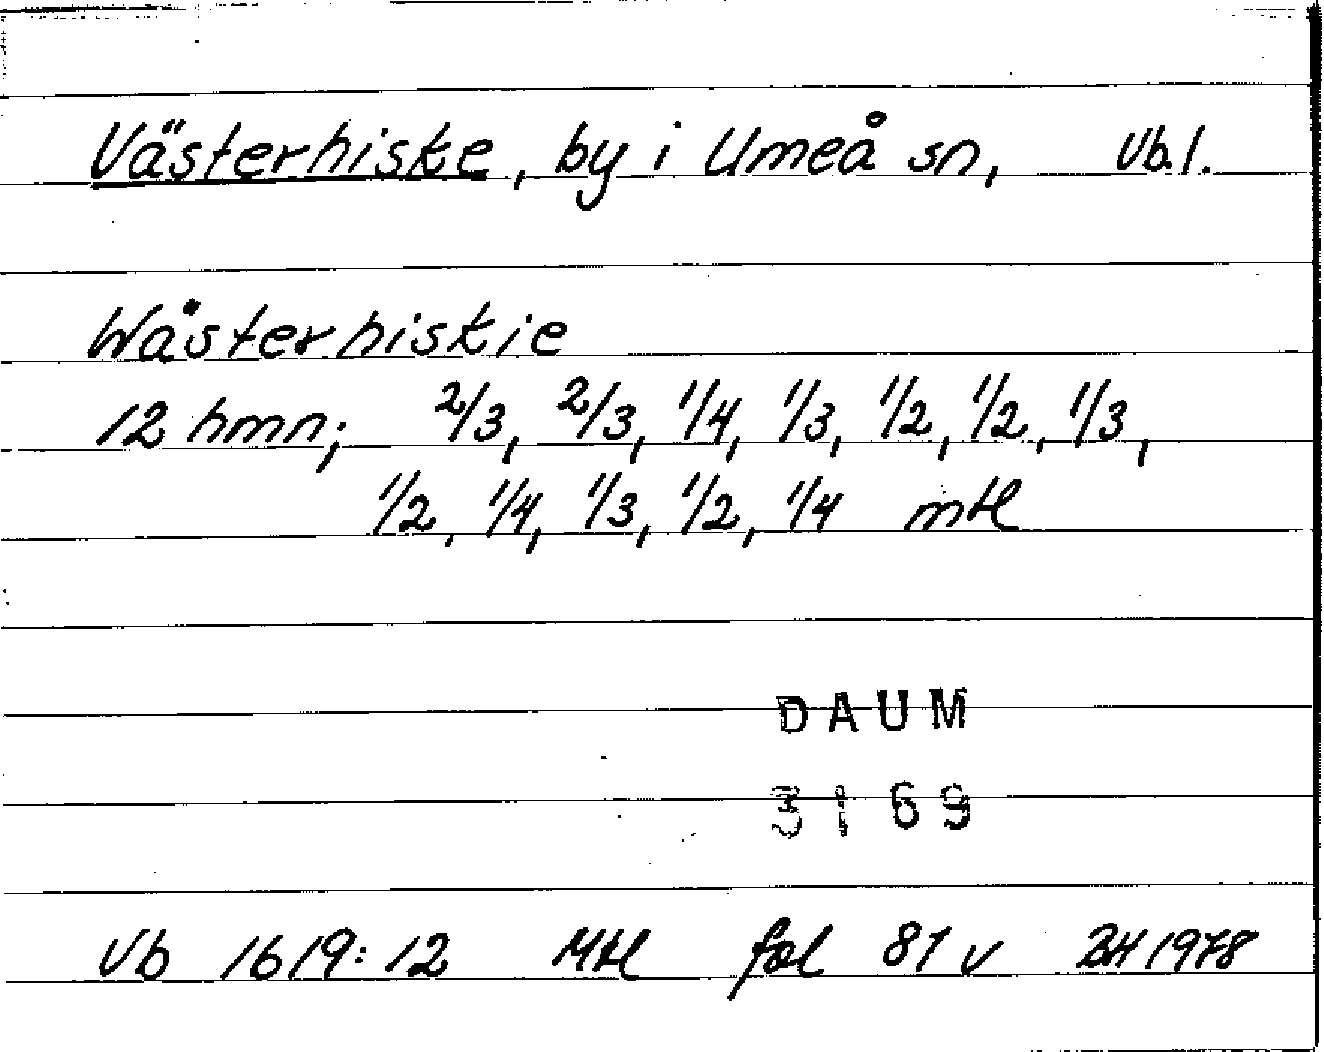 Västerhiske, by i Umeå sn, Vb.l.
Wästerhiskie
12 hmn; 2/3, 2/3, 1/4, 1/3, 1/2, 1/2, 1/3,
1/2, 1/4, 1/3, 1/2, 1/4 mtl
DAUM
3169
Vb 1619:12 Mtl fol 81 v BH 1978